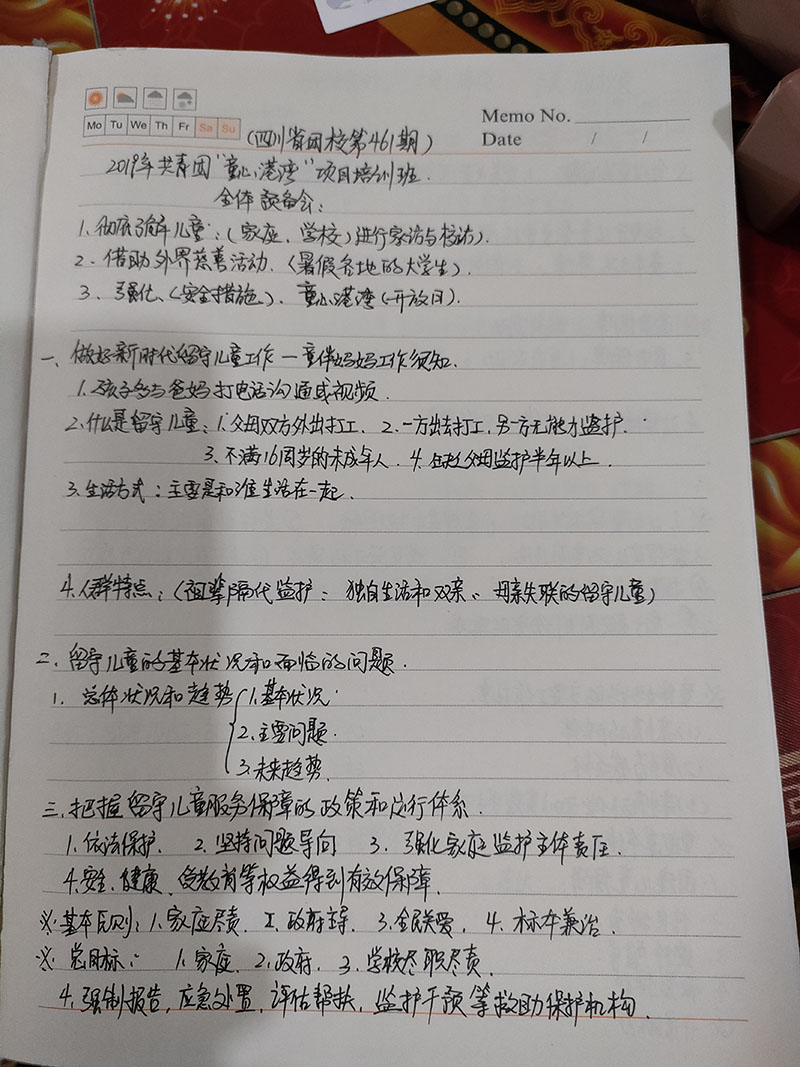 Memo No.
Mo Tu We Th Fr Sa Su
Date / /
(四川省团校第461期)
2019年共青团"童心港湾"项目培训班.
全体预备会:
1.彻底了解儿童:(家庭、学校)进行家访与校访).
2.借助外界慈善活动.(暑假各地的大学生).
3、强化、(安全措施)、童心港湾(开放日).
一、做好新时代留守儿童工作—童伴妈妈工作须知.
1.孩子多与爸妈打电话沟通或视频.
2.什么是留守儿童:1.父母双方外出打工. 2.一方出去打工,另一方无能力监护.
3.不满16周岁的未成年人. 4.缺父母监护半年以上.
3.生活方式:主要是和谁生活在一起.
4.人群特点:(祖辈隔代监护: 独自生活和双亲、母亲失联的留守儿童)
二.留守儿童的基本状况和面临的问题.
1.总体状况和趋势{1.基本状况.
2.主要问题.
3.未来趋势.
三.把握留守儿童服务保障的政策和运行体系.
1.依法保护. 2.坚持问题导向 3.强化家庭监护主体责任.
4.安全、健康、受教育等权益得到有效保障.
※基本原则:1.家庭尽责 2.政府主导. 3.全民关爱, 4.标本兼治.
※总目标: 1.家庭. 2.政府. 3.学校尽职尽责.
4.强制报告,应急处置,评估帮扶,监护干预等救助保护机构.